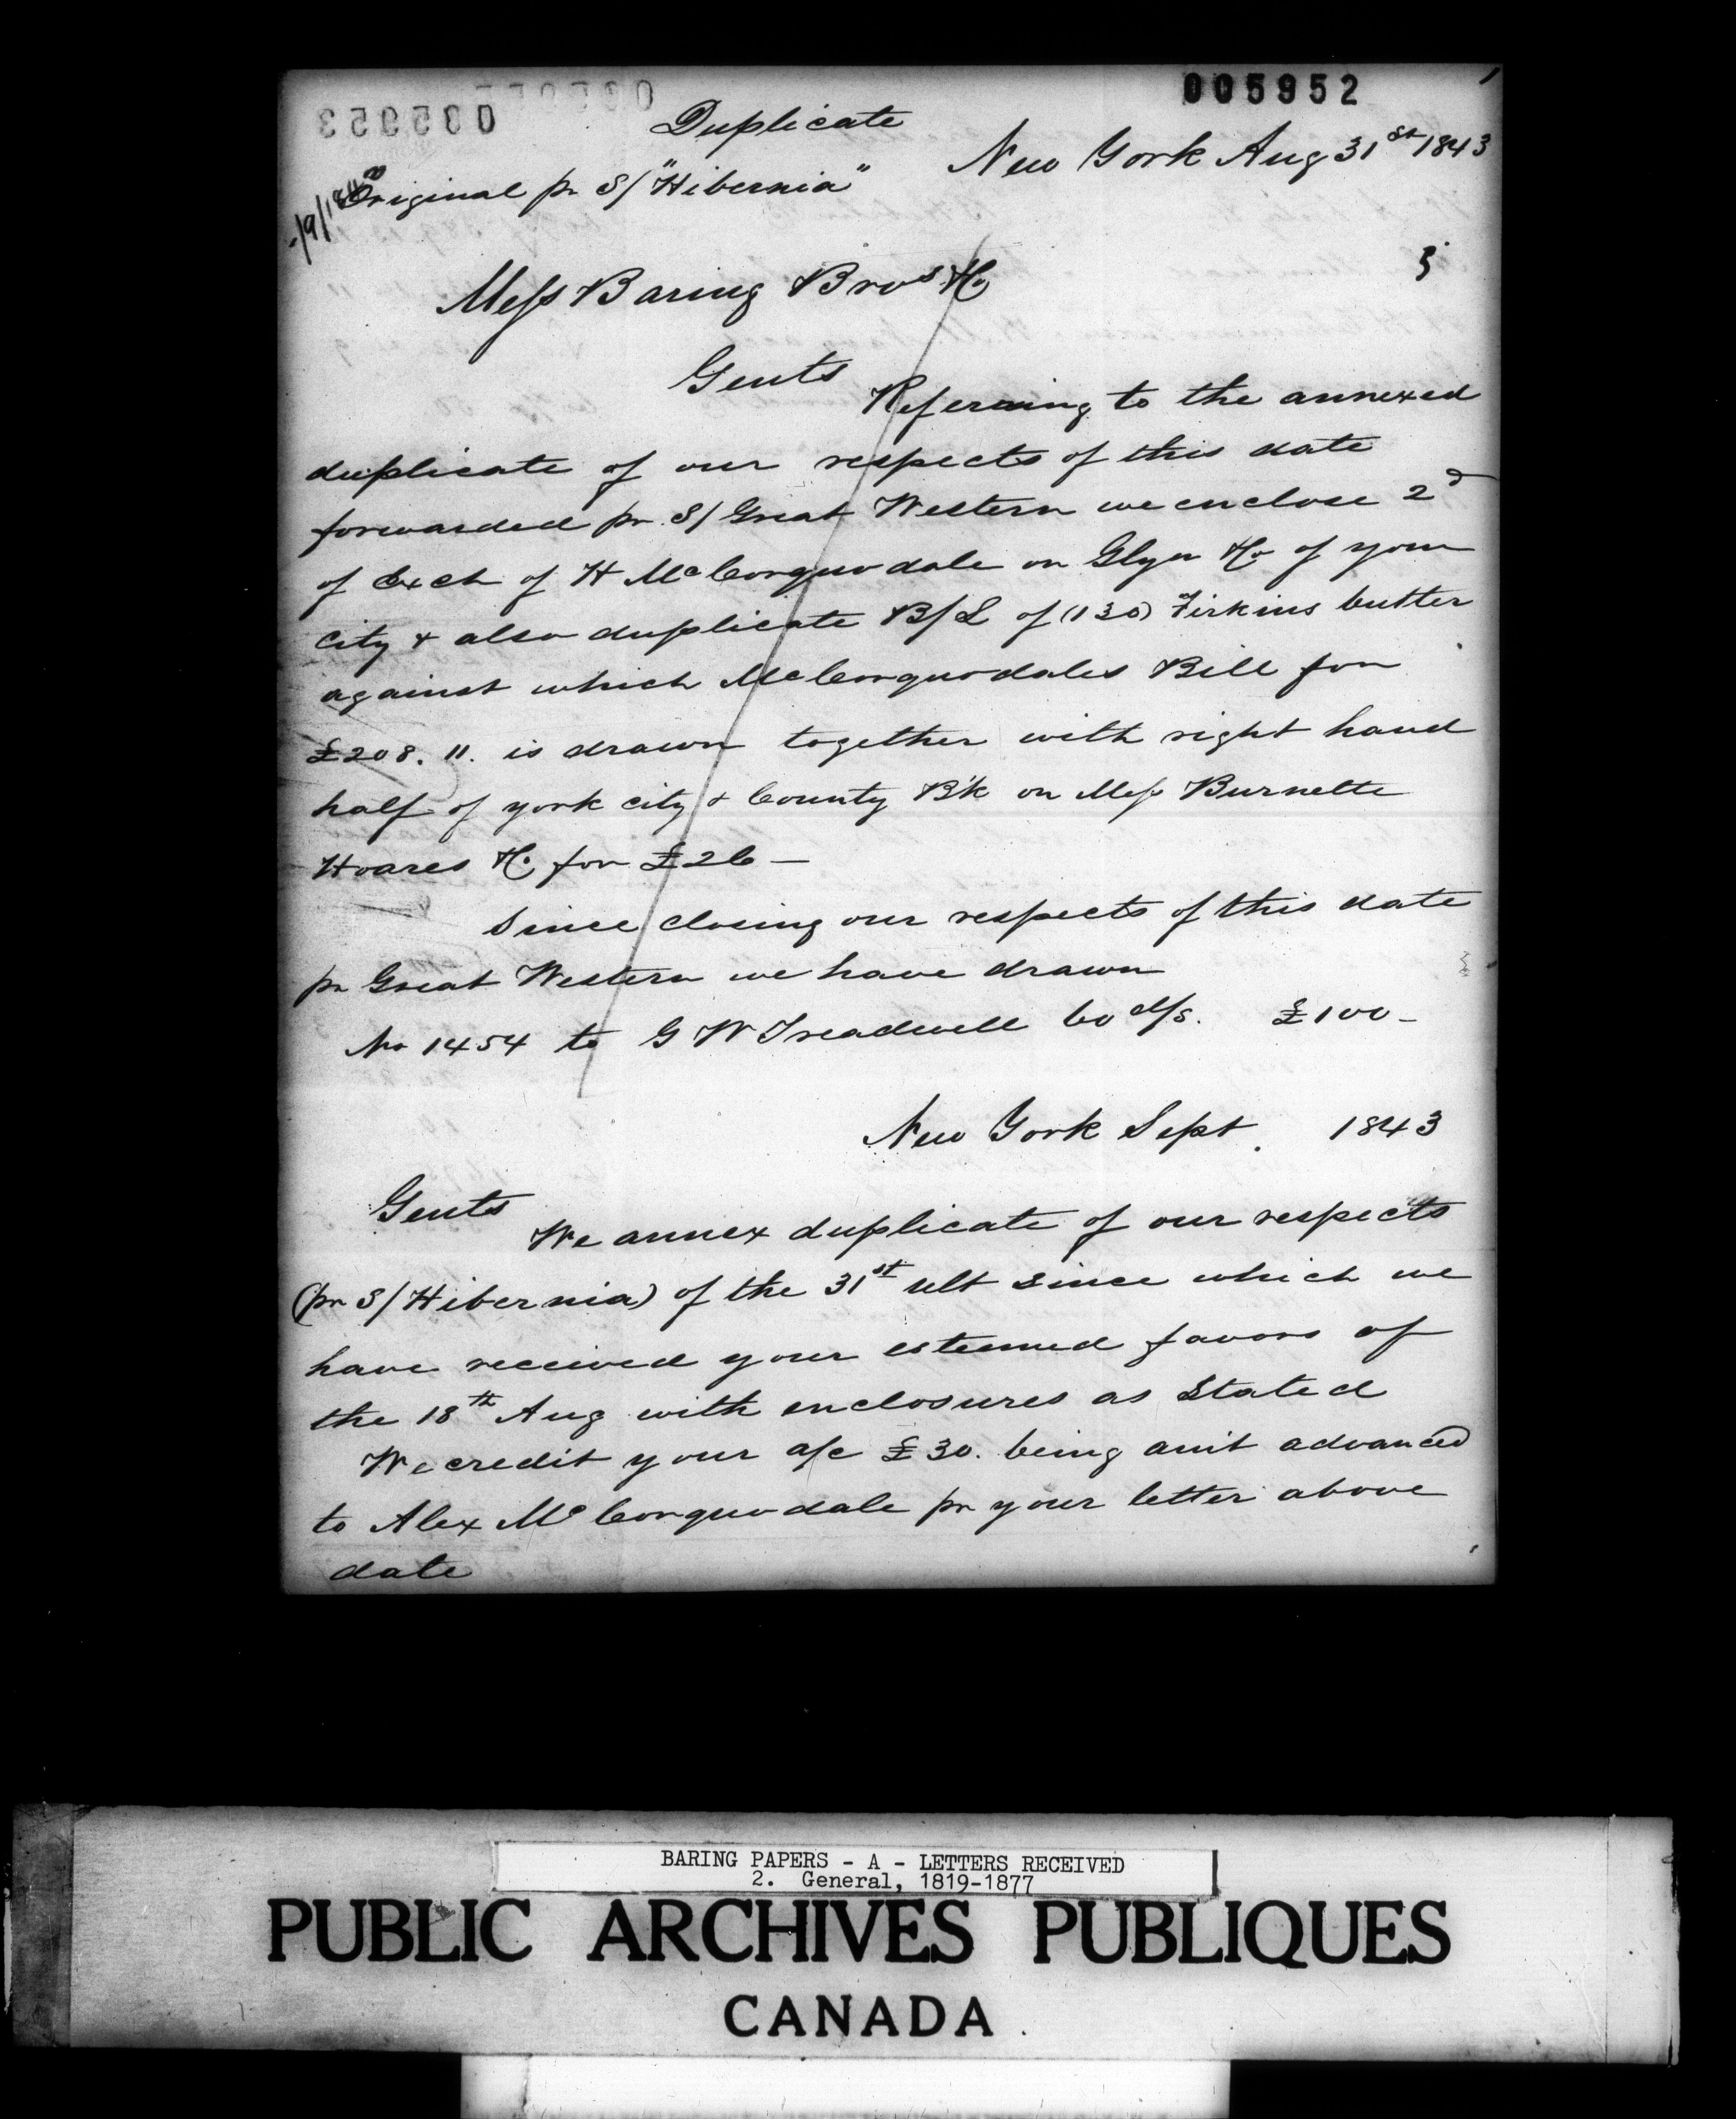 005952
Duplicate
New York Aug 31st 1843
Original pr S/ "Hibernia"
Mess Baring Bros & Co
Gents
Referring to the annexed
duplicate of our respects of this date
forwarded pr S/ Great Western we enclose 2d
of Exch of H McCorquodale on Glyn & Co of your
city & also duplicate B/L of (130) Firkins butter
against which McCorquodales Bill for
£208. 11. is drawn together with right hand
half of york city & County B'k on Mess Burnette
Hoares & Co for £26 —
Since closing our respects of this date
pr Great Western we have drawn
No 1454 to G W Treadwell 60 d/s. £100 -
New York Sept. 1843
Gents
We annex duplicate of our respects
(pr S/ Hibernia) of the 31st ult since which we
have received your esteemed favors of
the 18th Aug with enclosures as Stated
We credit your a/c £30. being amt advanced
to Alex McCorquodale pr your letter above
date
BARING PAPERS - A - LETTERS RECEIVED
2. General, 1819-1877
PUBLIC ARCHIVES PUBLIQUES
CANADA